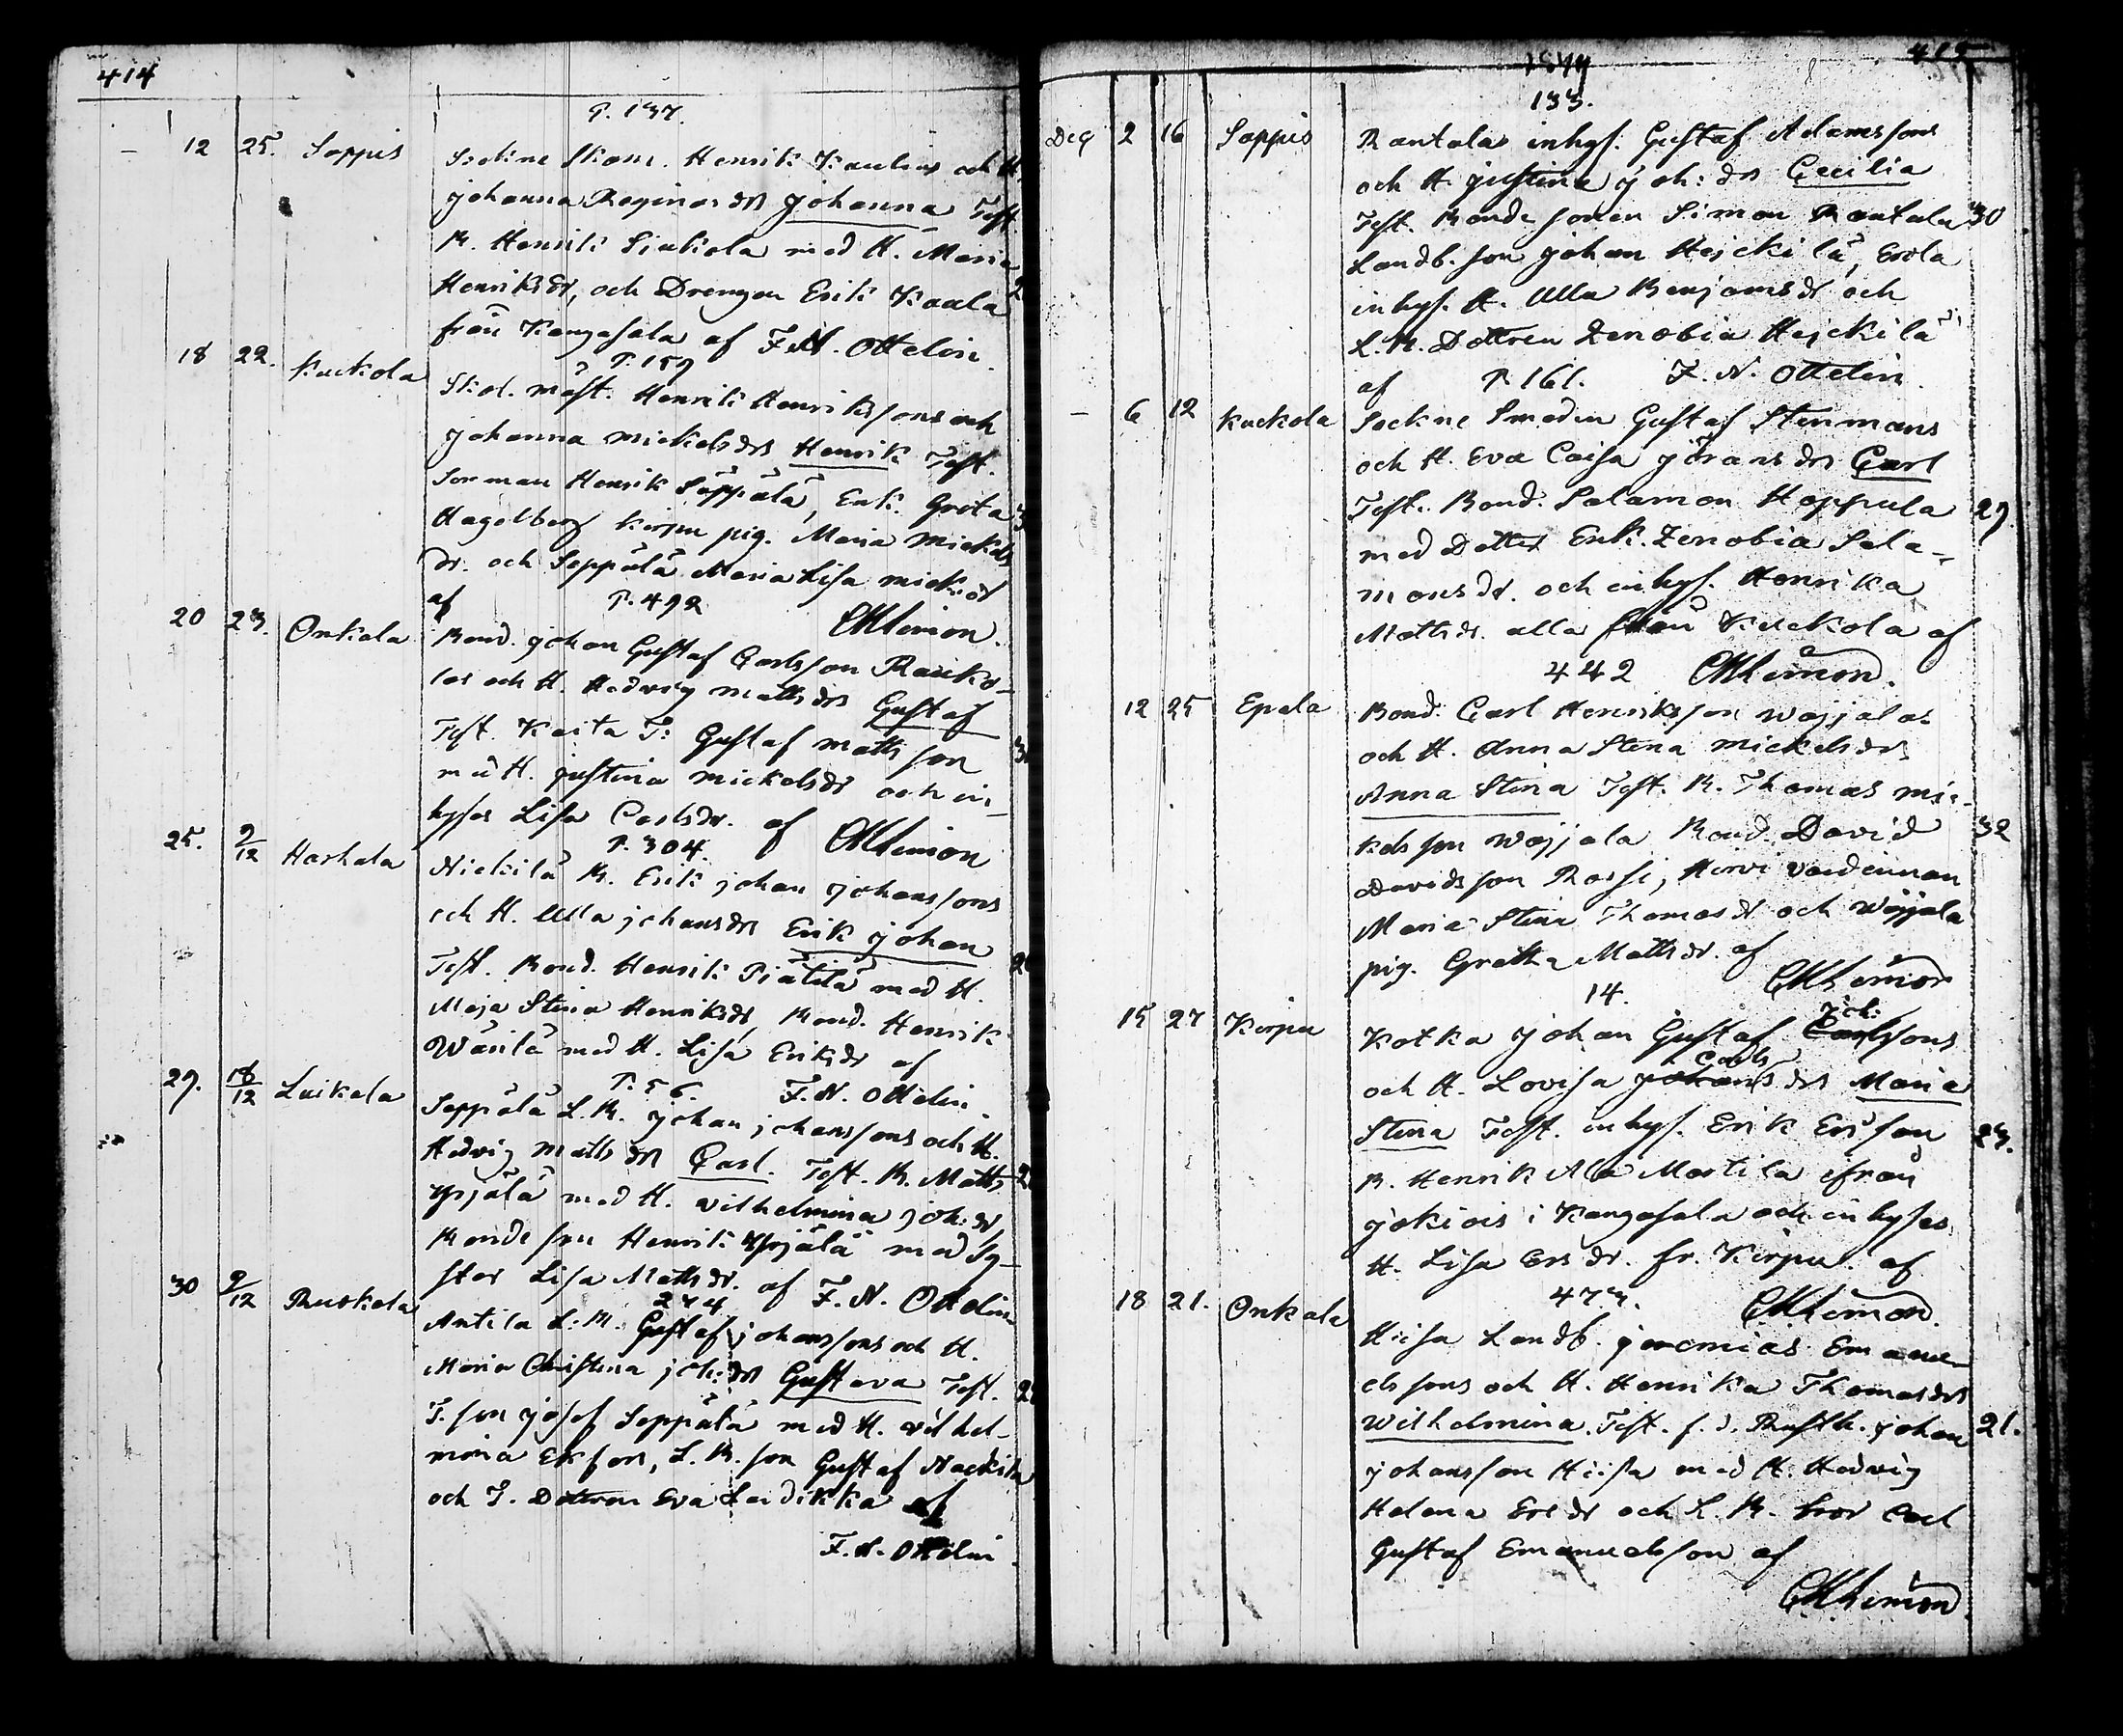 414
P. 137.
12 25. Soppis Sockne Skom. Henrik Kaulins och H.
Johanna Reginas dr Johanna Test.
B. Henrik Siukola med H. Maria
Henriksdr, och Drengen Erik Kaala
från Kangasala af F.N. Ottelin.
P. 159
18 22. Kuckola Skol. mäst. Henrik Henrikssons och
Johanna Mickelsdrs Henrik Test.
Torman Henrik Säppälä, Enk. Greta
Hagelberg Kirpu pig. Maria Mickels
dr. och Seppälä Maria Lisa Mick:dr
af P. 492 Ahlemon.
20 23. Onkala Bond. Johan Gustaf Carlsson Rauko-
las och H. Hedwig Mattsdrs Gustaf
Test. Kaita T: Gustaf Mattsson
med H. Justina Mickelsdr och in-
hyses Lisa Carlsdr. af Ahlemon
P. 304.
25. 9/12 Harhala Nickilä B. Erik Johan Johanssons
och H. Ulla Johansdrs Erik Johan
Test. Bond. Henrik Piätilä med H.
Maja Stina Henriksdr, Bond. Henrik
Wäärilä med H. Lisa Eriksdr af
P. 56. F.N. Ottelin.
29. 18/12 Luikala Seppälä L.B. Johan Johanssons och H.
Hedvig Mattsdrs Carl. Test. B. Matts
Yrjälä med H. Vilhelmina Joh:dr,
Bondeson Henrik Yrjälä med Sy-
ster Lisa Mattsdr. af F.N. Ottelin
274
30 9/12 Ruokola Antila L:B. Gustaf Johanssons och H.
Maria Christina Joh:drs Gustava Test.
T. son Josef Seppälä med H. Vilhel-
mina Ekfors, L.B. son Gustaf Nackila
och T. Dottren Eva Laidikka af
F.N. Ottelin.
415
1844
133.
Dec 2 16 Soppis Rantalas inhys. Gustaf Adamssons
och H. Justina Joh:drs Cecilia
Test. Bondesonen Simon Rantala 30
Landb. son Johan Hejckilä, Erola
inhys. H. Ulla Benjamsdr och
L.B. Dottren Zenobia Hejckilä
af P. 161. F.N. Ottelin.
– 6 12 Kuckola Sockne Smeden Gustaf Stenmans
och H. Eva Caisa Göransdrs Carl
Test. Bond. Salamon Hoppula 29.
med Dotter Enk. Zenobia Sala-
monsdr. och inhys. Henrika
Mattsdr. alla från Kuckola af
442 Ahlemon.
12 25 Epala Bond. Carl Henriksson Wojjalas
och H. Anna Stina Mickelsdrs
Anna Stina Test. B. Thomas Mic-
kelsson Wojjala Bond. David 32
Davidsson Rossi, Hirvi värdinnan
Maria Stina Thomasdr och Wojjala
pig. Gretha Mattsdr. af
14. Ahlemon
15 27 Kirpu Kotka Johan Gustaf Joh: Carlssons
och H. Lovisa Carls Johans drs Maria
Stina Test. inhys. Erik Ersson 23.
B. Henrik Ala Martila ifrån
Jokiois i Kangasala och inhyses
H. Lisa Ersdr. fr. Kirpu. af
473. Ahlemon.
18 21. Onkala Hiisa Landb. Jeremias Emanu-
elssons och H. Henrika Thomasdrs
Wilhelmina. Test. f.d. Rusth. Johan 21.
Johansson Hiisa med H. Hedvig
Helena Ersdr och L.B. bror Carl
Gustaf Emanuelsson af
Ahlemon.